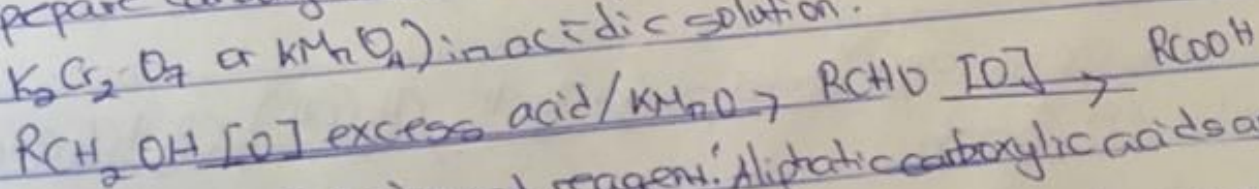 prepare
K₂Cr₂O₇ or KMnO₄) in acidic solution.
RCH₂OH [O] excess acid/KMnO → RCHO [O] → RCOOH
reagent. Aliphatic carboxylic acids a